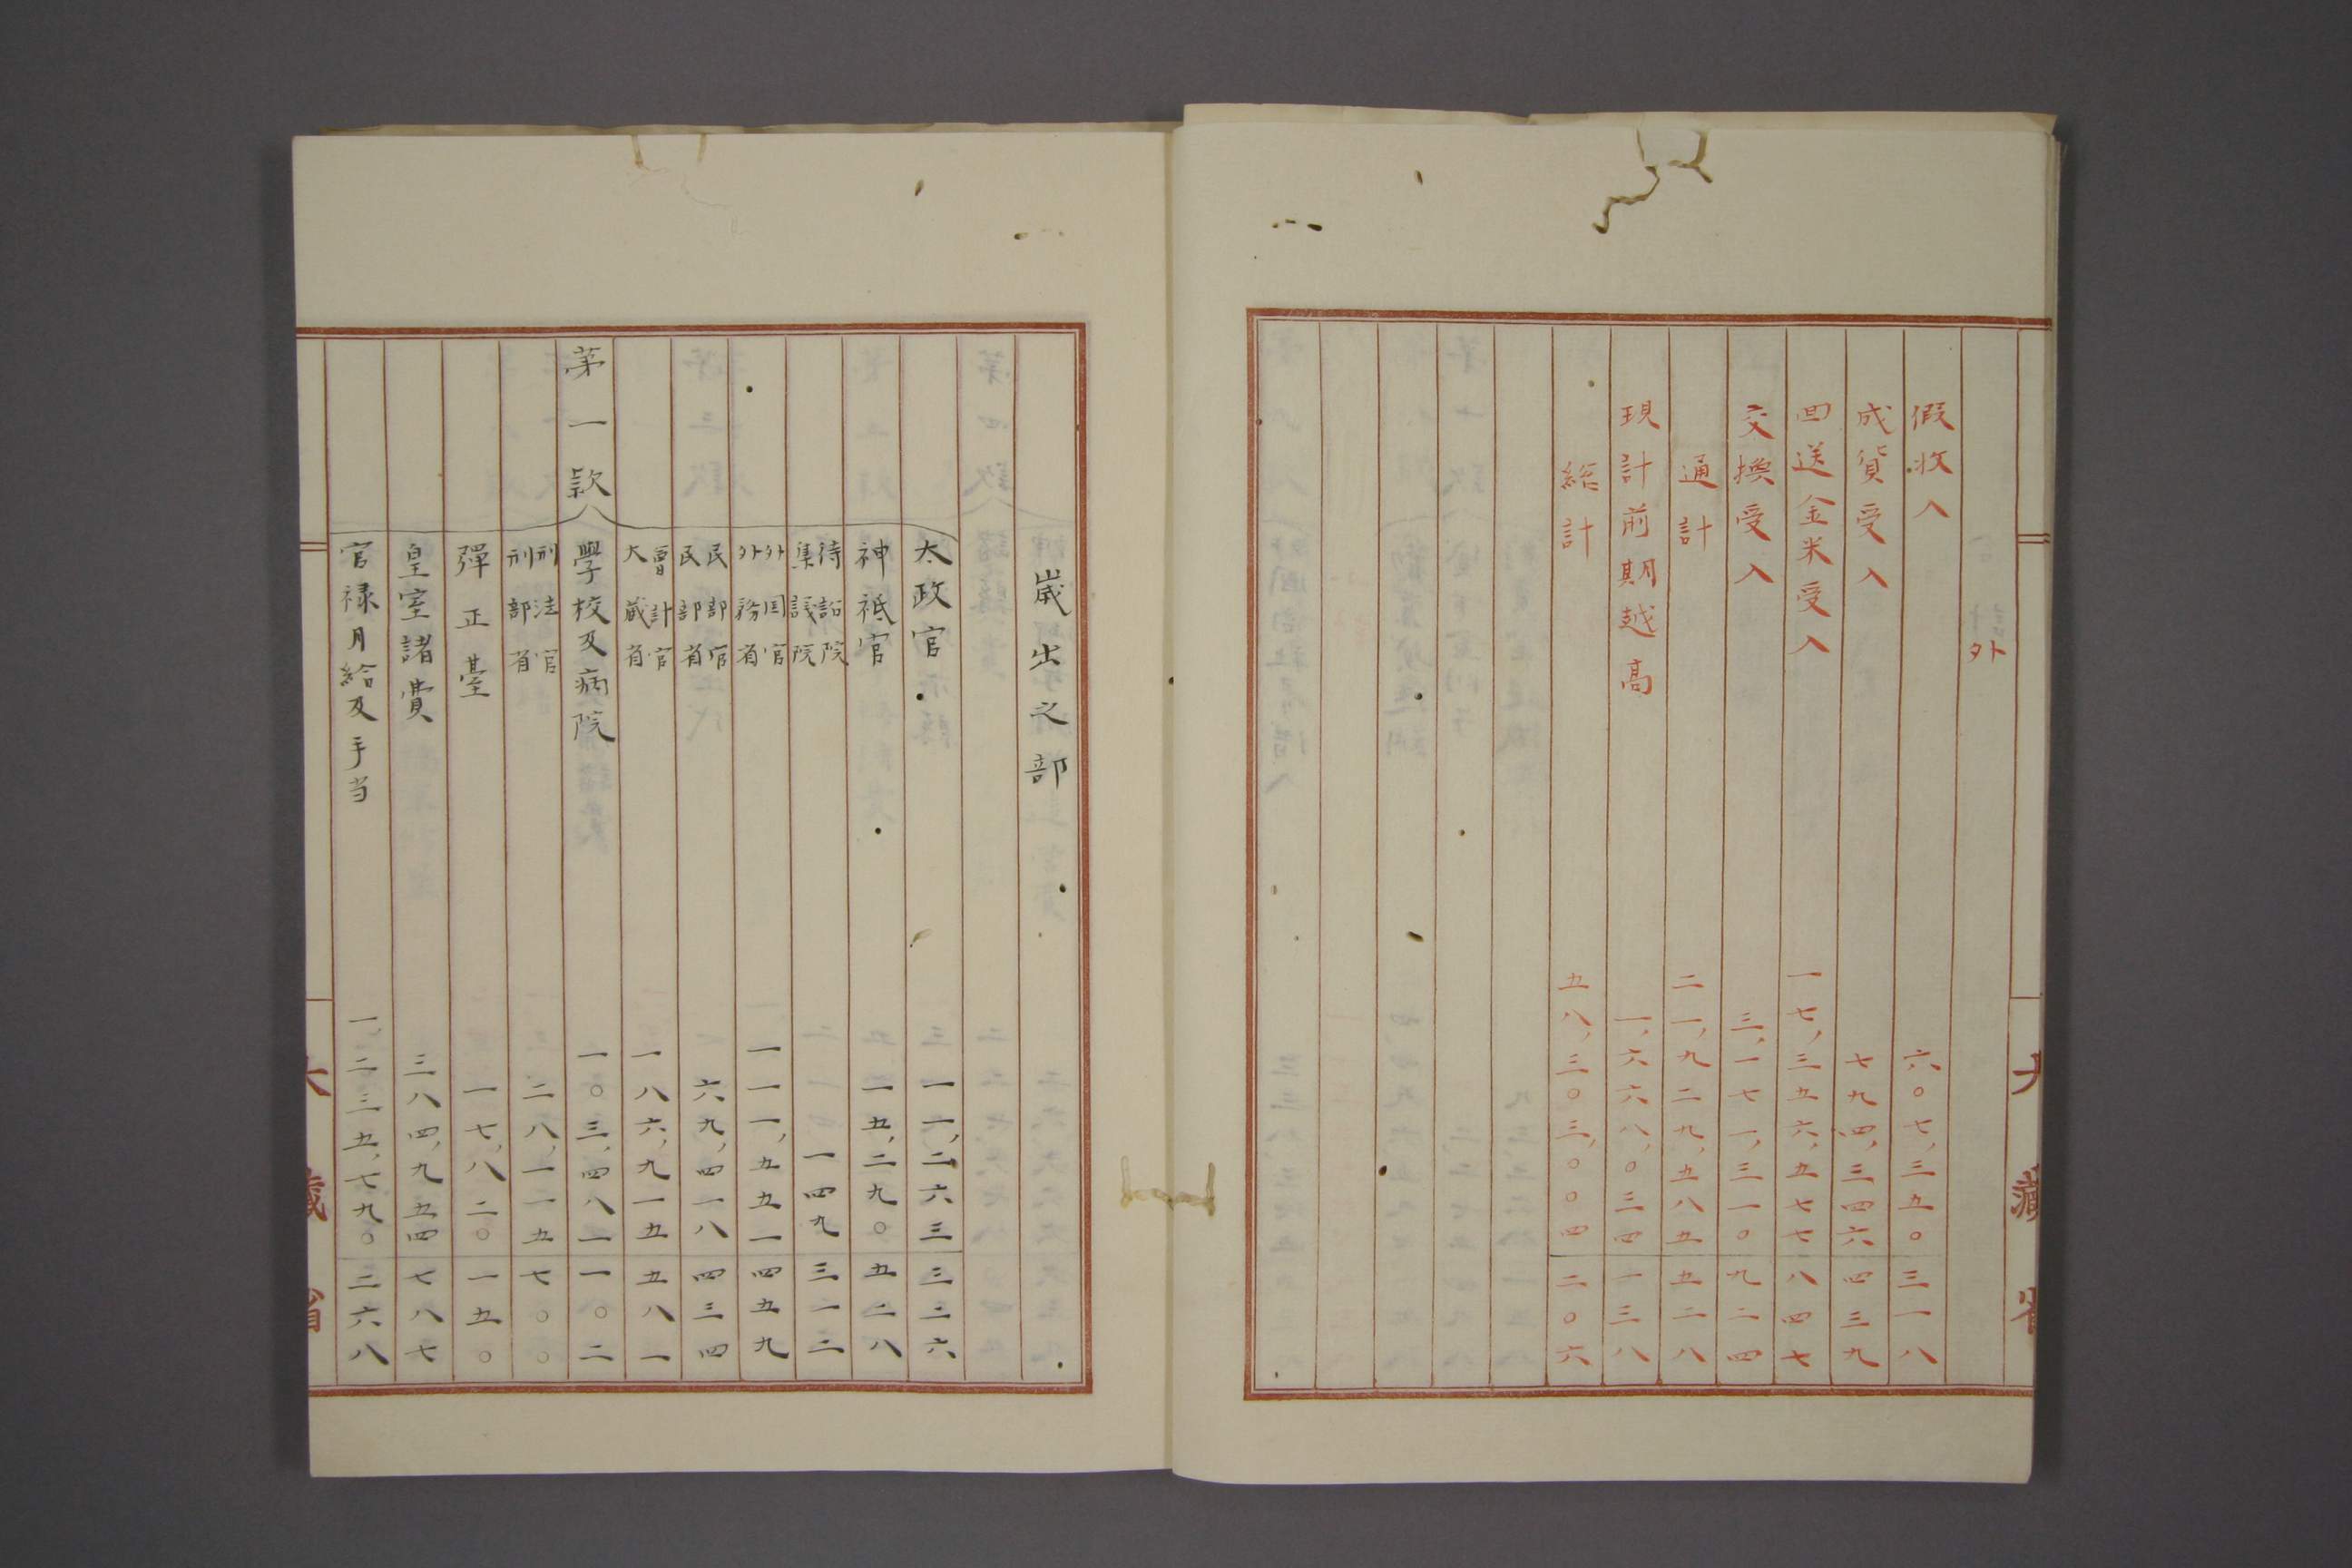 外
假收入 六〇七,三五〇 三一八
成貨受入 七九四,三四六 四三九
回送金米受入 一七,三五六,五七七 八四七
交換受入 三,一七一,三一〇 九二四
通計 二一,九二九,五八五 五二八
現計前期越高 一,六六八,〇三四 一三八
総計 五八,三〇三,〇〇四 二〇六
歳出之部
太政官 一一,二六三 三二六
神祗官 一五,二九〇 五二八
待詔院
集議院 一四九 三一二
外国官
外務省 一一一,五五一 四五九
民部官
民部省 六九,四一八 四三四
會計官
大蔵省 一八六,九一五 五八一
第一款
學校及病院 一〇三,四八一 一〇二
刑法官
刑部省 二八,一一五 七〇〇
彈正臺 一七,八二〇 一五〇
皇室諸費 三八四,九五四 七八七
官禄月給及手当 一,二三五,七九〇 二六八
大藏省